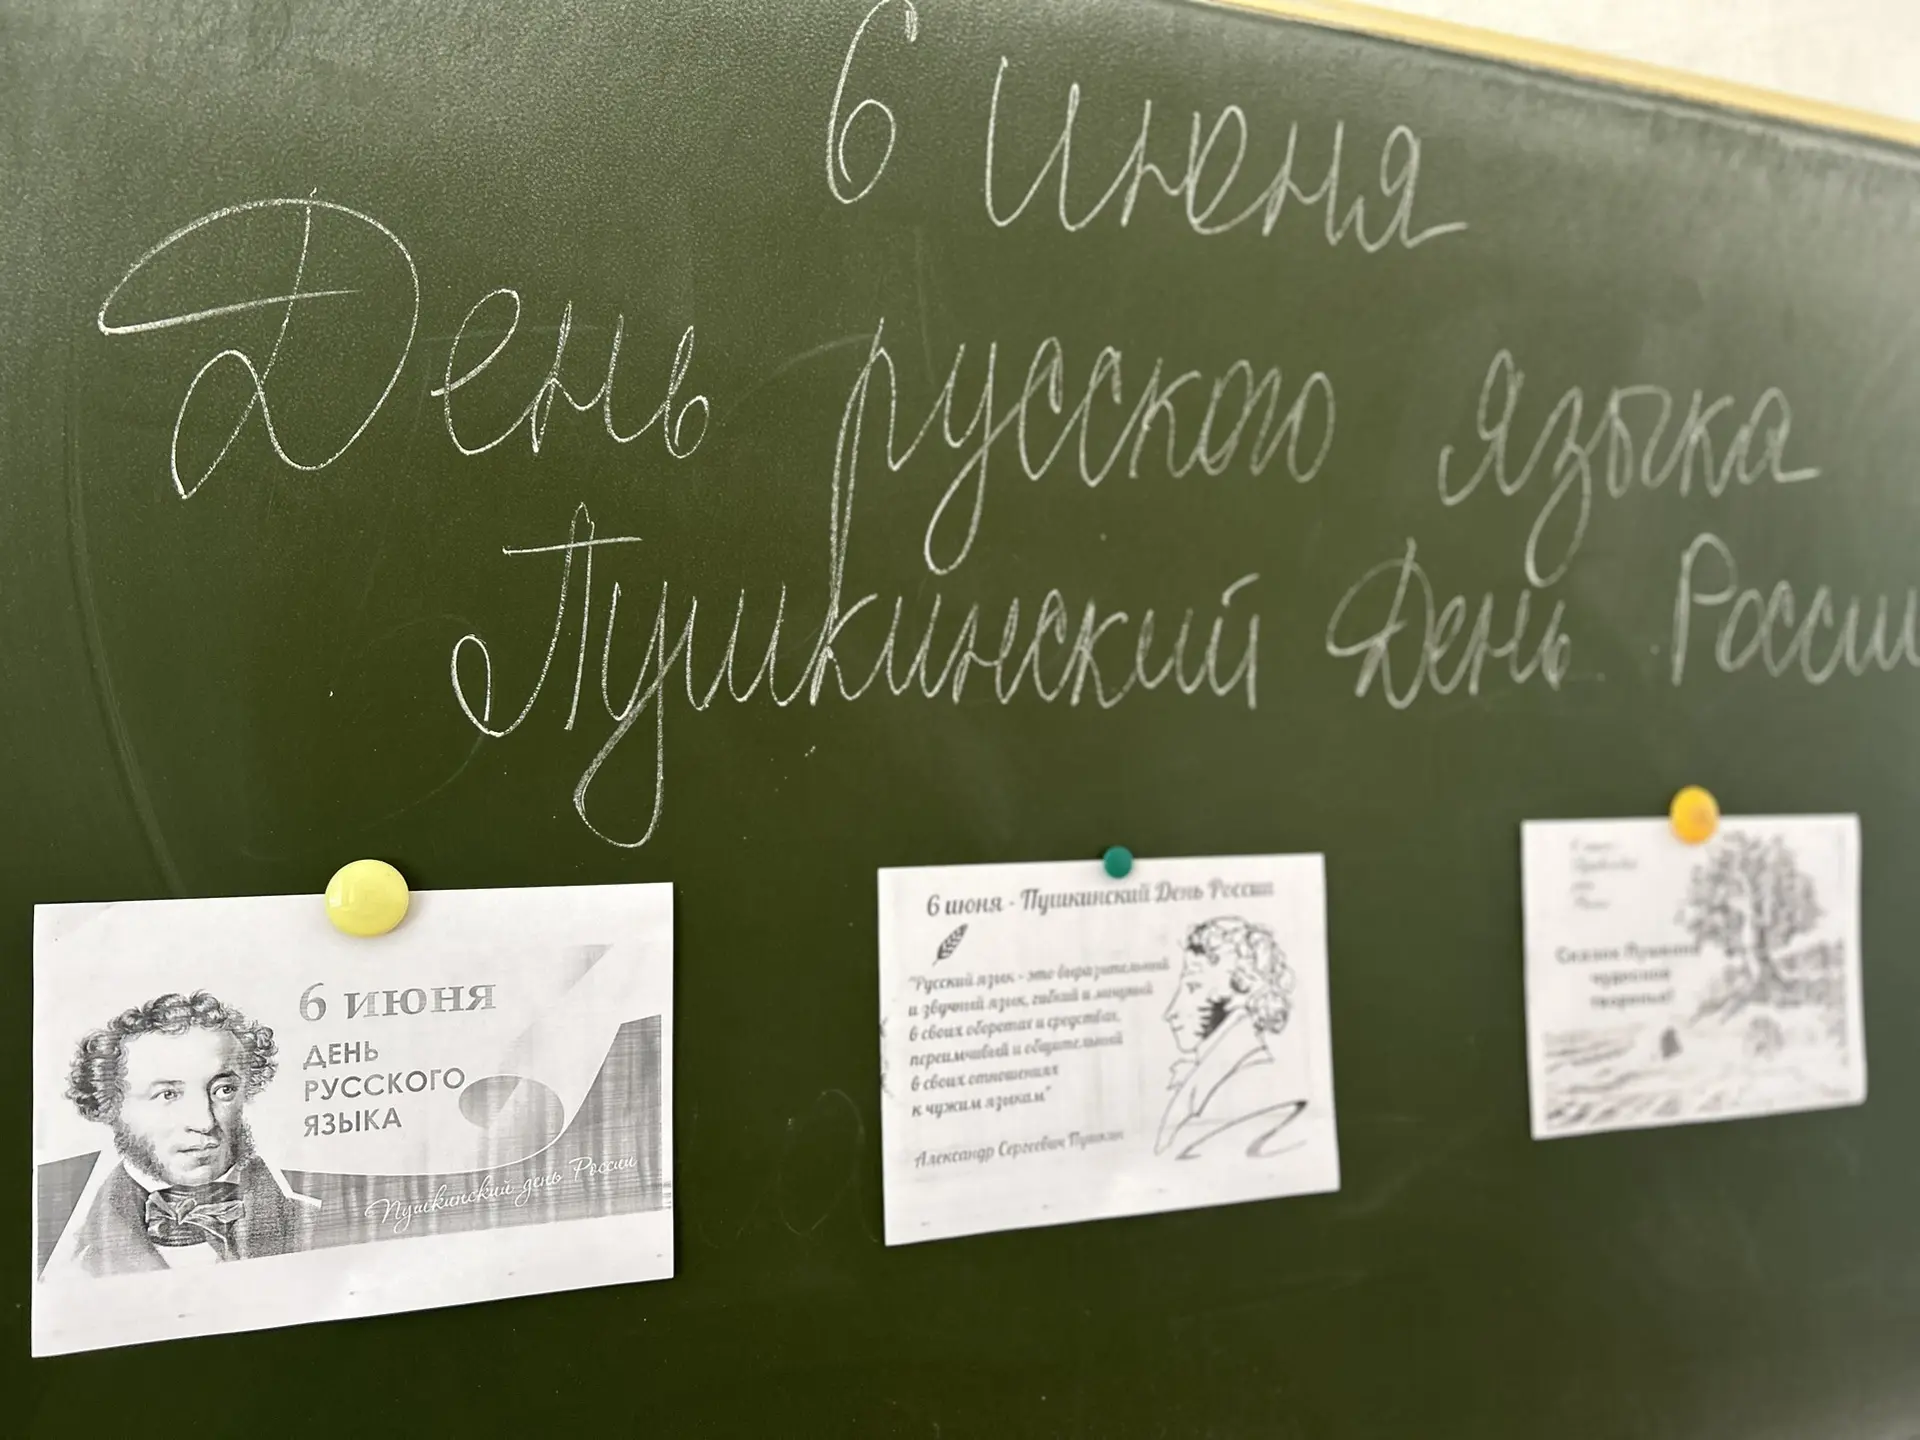 6 июня
День русского языка
Пушкинский День России
6 июня
ДЕНЬ
РУССКОГО
ЯЗЫКА
Пушкинский день России
6 июня - Пушкинский День России
"Русский язык - это выразительный
и звучный язык, гибкий и мощный
в своих оборотах и средствах,
переимчивый и общительный
в своих отношениях
к чужим языкам"
Александр Сергеевич Пушкин
Сказки Пушкина
чудесные
творенья!